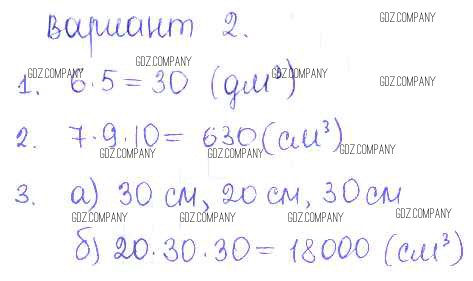 Вариант 2.
GDZ.COMPANY
GDZ.COMPANY GDZ.COMPANY GDZ.COMPANY GDZ.COMPANY
1. 6·5 = 30 (дм³)
2. 7·9·10 = 630 (см³)
GDZ.COMPANY GDZ.COMPANY GDZ.COMPANY
3. а) 30 см, 20 см, 30 см
GDZ.COMPANY GDZ.COMPANY GDZ.COMPANY GDZ.COMPANY
б) 20·30·30 = 18000 (см³)